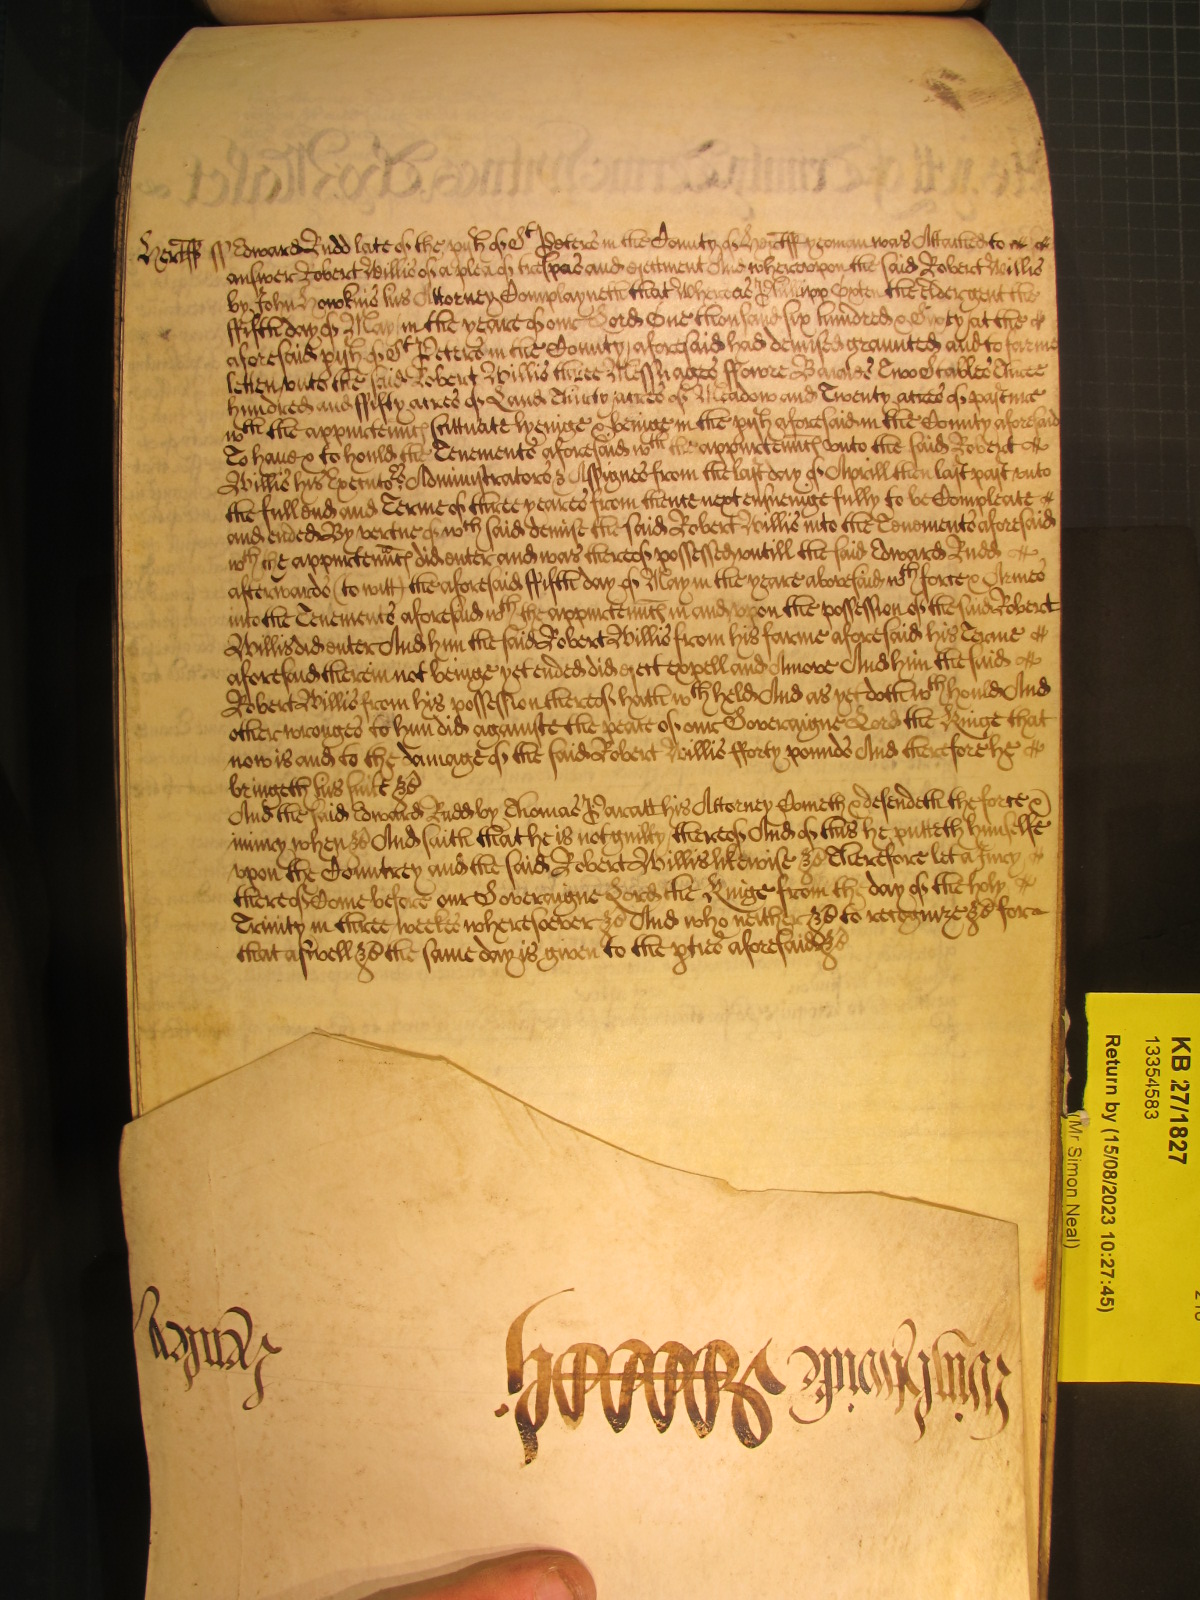 Hertff ss Edward Rudd late of the pish of St Peters in the County of Hertff yeoman was Attached to
answer Robert Willis of a plea of trespas and eiectment &c And whereupon the said Robert Willis
by John Hawkins his Attorney Complayneth that Whereas Phillipp Oxton the elder gent the
ffifth day of May in the yeare of our Lord One thousand six hundred & Sixty at the
aforesaid pish of St Peters in the County aforesaid had demised graunted and to farme
letten unto the said Robert Willis three Messuages ffowre Barnes Two Stables Three
hundred and ffifty acres of Land Thirty acres of Meadow and Twenty acres of pasture
wth the appurtenncs scittuate lyeinge & beinge in the pish aforesaid in the County aforesaid
To have & to hould the Tenements aforesaid wth the appurtenncs unto the said Robert
Willis his Executors Administrators & Assignes from the last day of Aprill then last past unto
the full end and Terme of three yeares from thence next ensueinge fully to be Compleate
and ended By vertue of wch said demise the said Robert Willis into the Tenements aforesaid
wth the appurtenncs did enter and was thereof possessed untill the said Edward Rudd
afterwards (to witt) the aforesaid ffifth day of May in the yeare abovesaid wth force & Armes
into the Tenements aforesaid wth the appurtenncs in and upon the possession of the said Robert
Willis did enter And him the said Robert Willis from his farme aforesaid his Terme
aforesaid therein not beinge yet ended did eject expell and Amove And him the said
Robert Willis from his possession thereof hath wth held And as yet doth wth hould And
other wronges to him did againste the peace of our Soveraigne Lord the Kinge that
now is and to the damage of the said Robert Willis fforty pounds And therefore he
bringeth his suite &c
And the said Edward Rudd by Thomas Paratt his Attorney Cometh & defendeth the force &
iniury when &c And saith that he is not guilty thereof And of this he putteth himselfe
upon the Countrey and the said Robert Willis likewise &c Therefore let a Jury
thereof Come before our Soveraigne Lord the Kinge from the day of the holy
Trinity in three weekes wheresoever &c And who neither &c to recognize &c for
that aswell &c the same day is given to the pties aforesaid &c
KB 27/1827
13354583
Return by (15/08/2023 10:27:45)
(Mr Simon Neal)